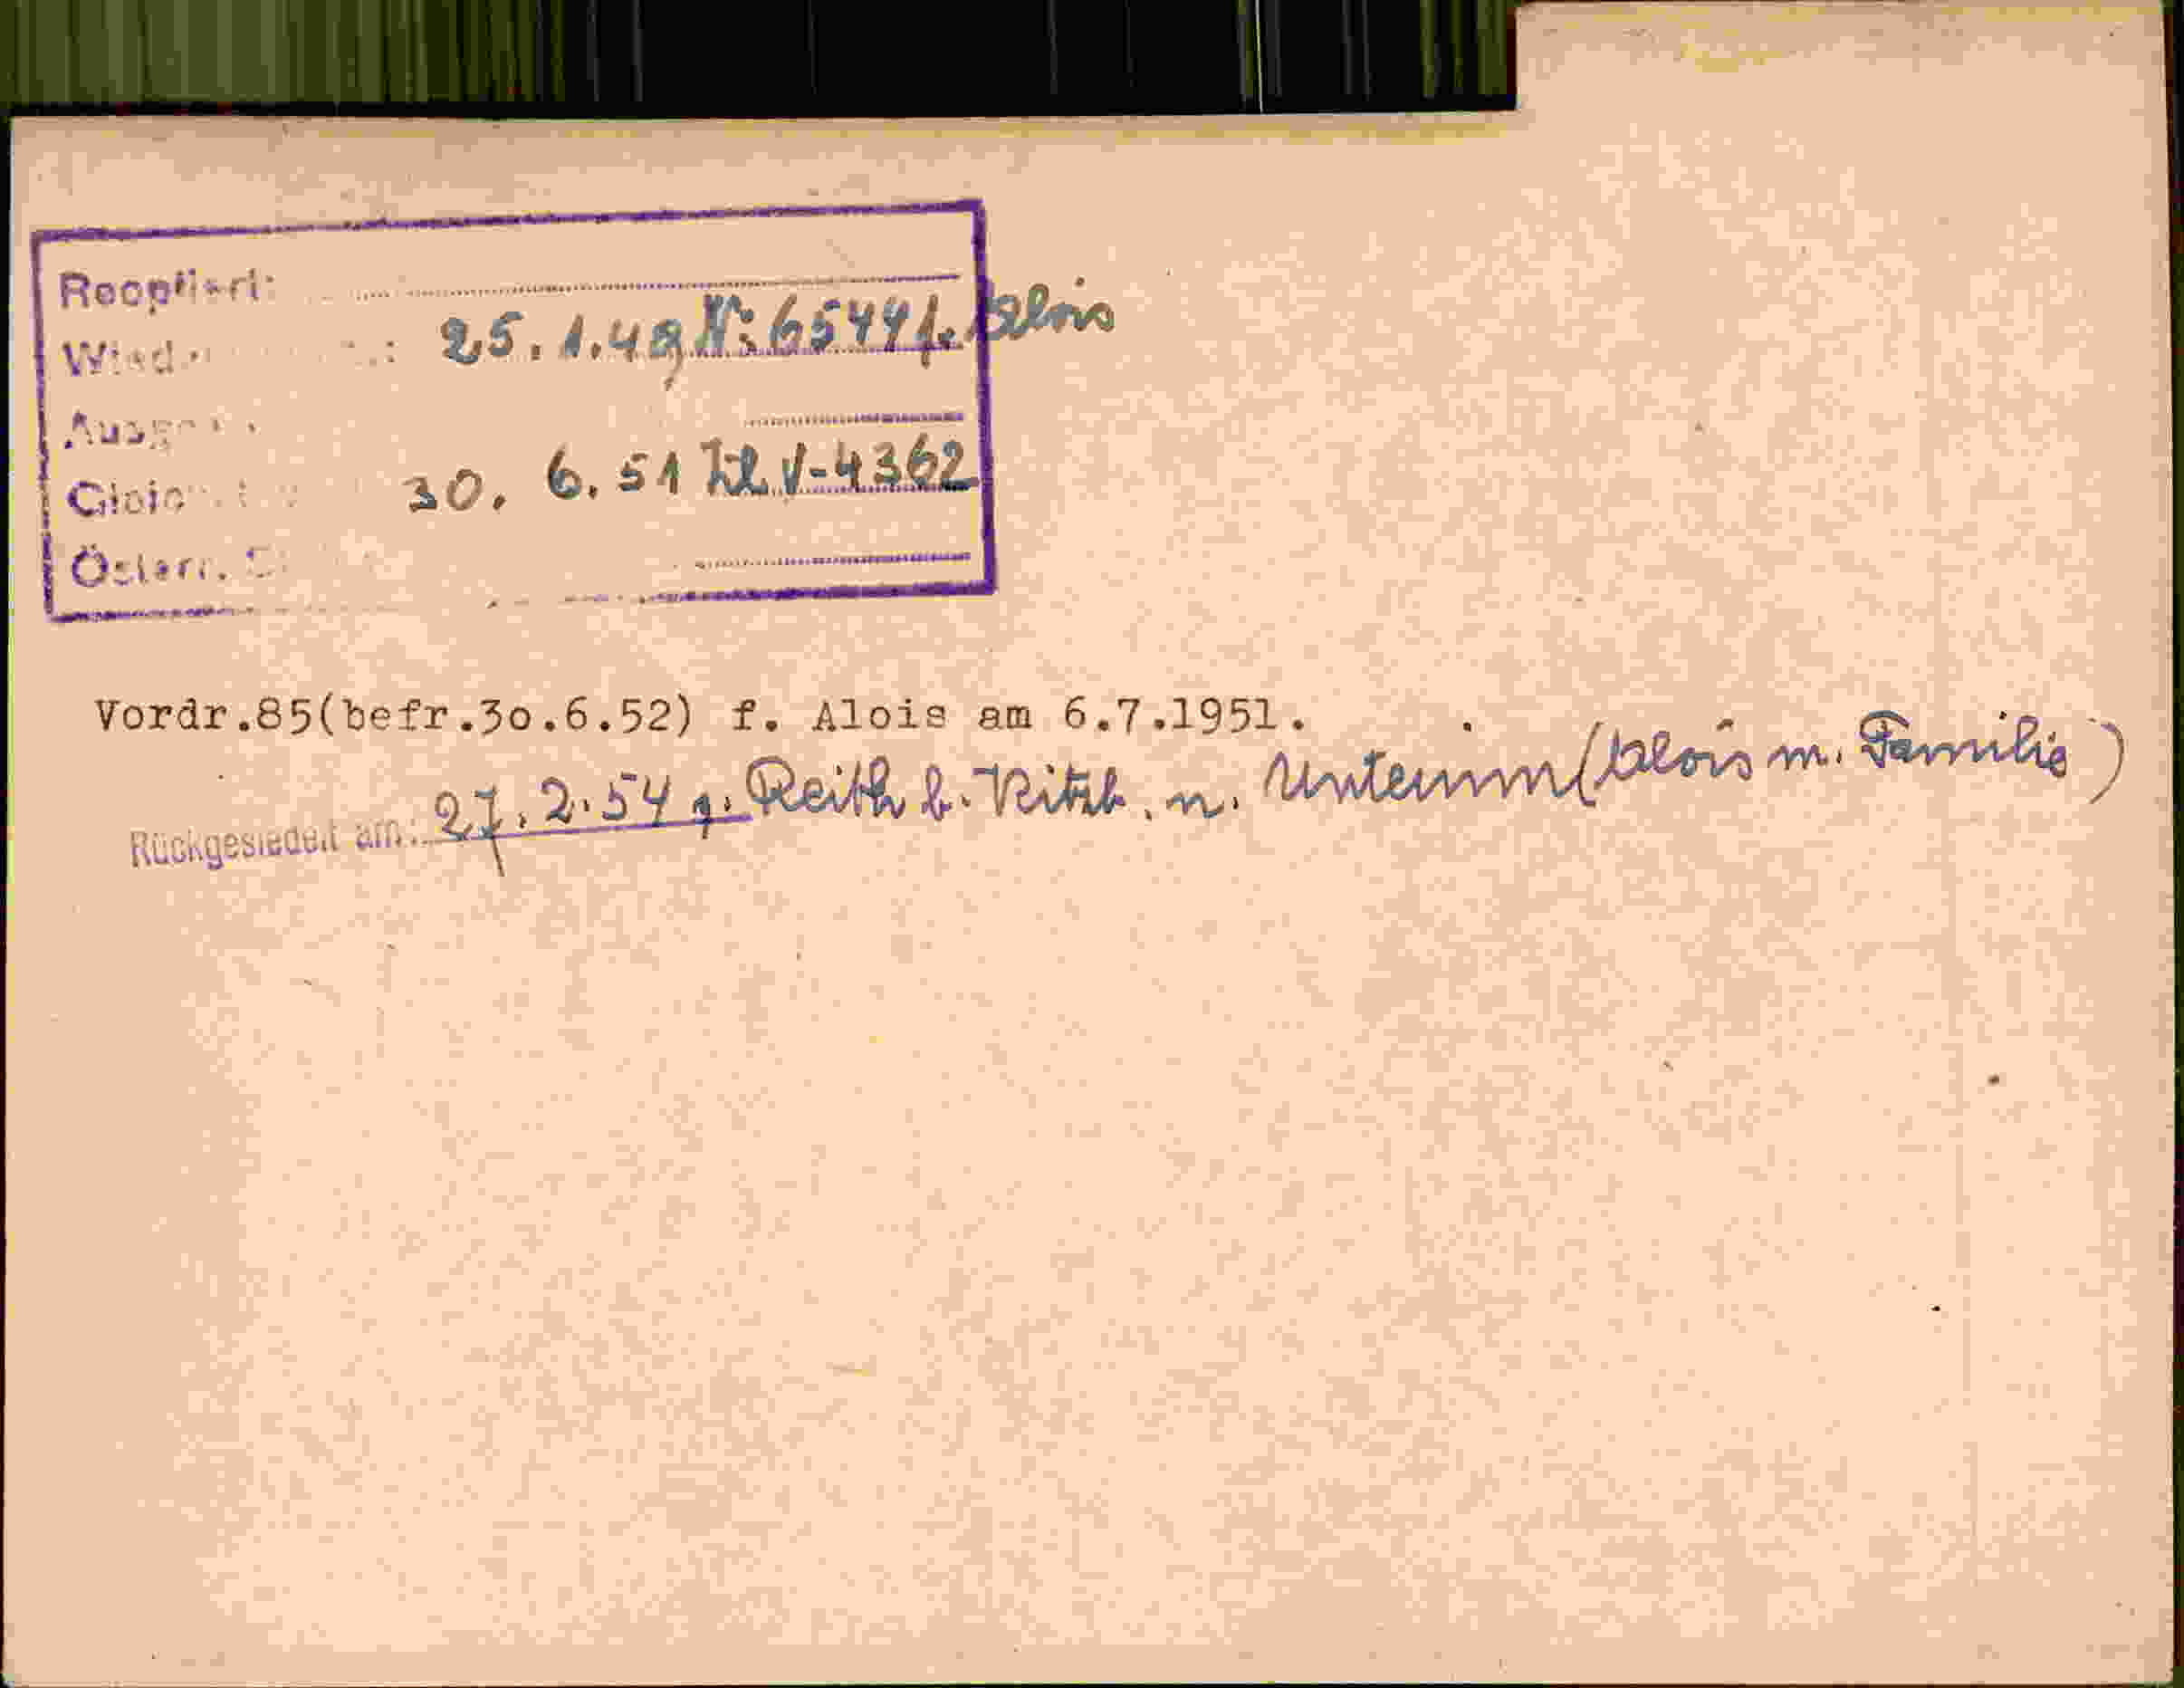 Reoptiert:
25.1.49 N: 6544 f. Alois
30. 6. 51 Zl V-4362
Österr.
Vordr.85(befr.3o.6.52) f. Alois am 6.7.1951.
Rückgesiedelt am: 27.2.54 v. Reith b. Kitzb. n. Unterinn (Alois m. Familie)